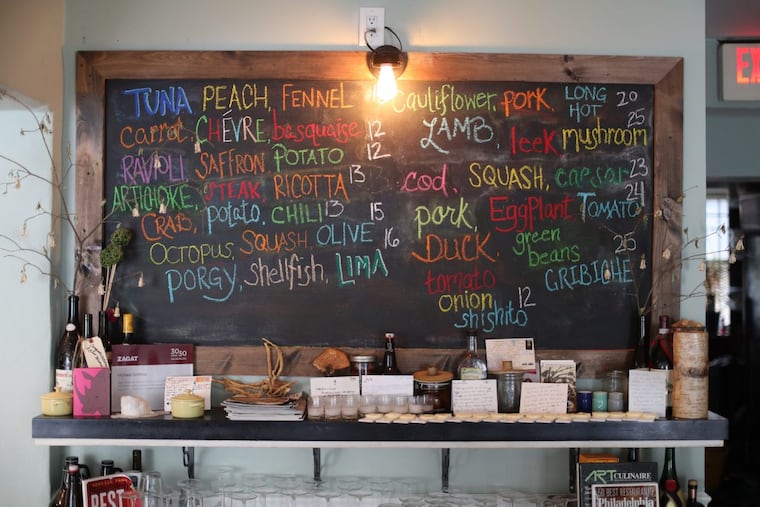 TUNA PEACH, FENNEL
carrot, CHÉVRE, basquaise 12
RAVIOLI SAFFRON POTATO 12
ARTICHOKE, STEAK, RICOTTA 13
CRAB, potato, CHILI 13 15
OCTOPUS, SQUASH, OLIVE 16
PORGY, shellfish, LIMA
Cauliflower, pork, LONG HOT 20
LAMB, leek mushroom 25
cod, SQUASH, caesar 23
pork, EggPlant, TOMATO 24
DUCK, green beans 25
tomato GRIBICHE
onion 12
shishito
EX
ZAGAT
30
30
BES
ART CULINAIRE
50 BEST RESTAURANTS
Philadelphia